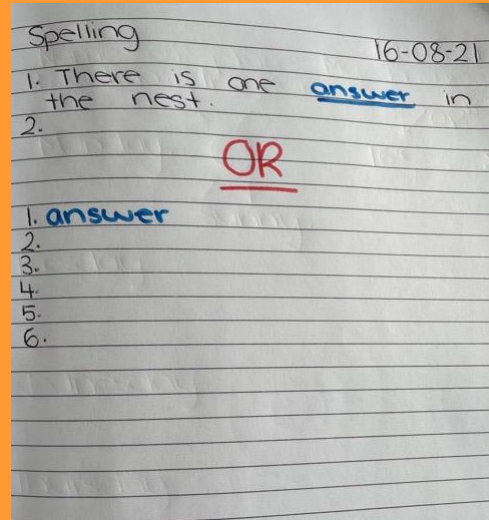 Spelling
16-08-21
1. There is one answer in
the nest.
2.
OR
1. answer
2.
3.
4.
5.
6.